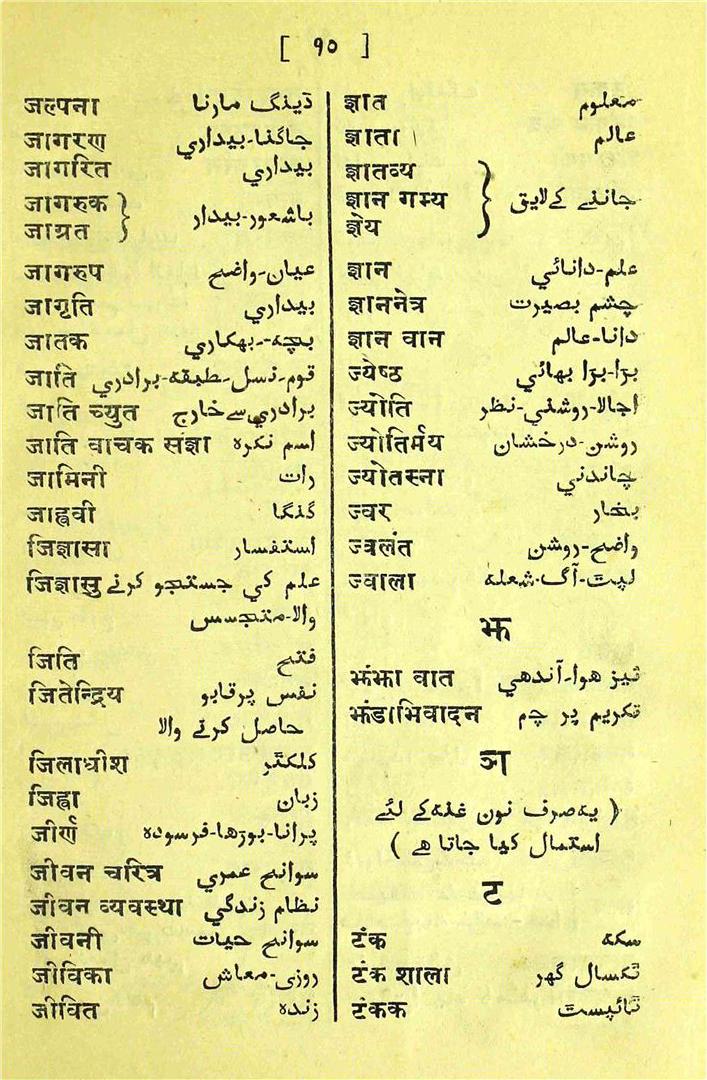 [ ९० ]
जल्पना ڈینگ مارنا
जागरण جاگنا-بیداري
जागरित بیداري
जागरुक
जाग्रत } باشعور-بیدار
जागरुप عیان-واضح
जागृति بیداري
जातक بچہ-بھکاري
जाति قوم-نسل-طبقہ-برادري
जाति च्युत برادري سے خارج
जाति वाचक संज्ञा اسم نکرہ
जामिनी رات
जाह्नवी گنگا
जिज्ञासा استفسار
जिज्ञासु علم کي جستجو کرنے
والا-متجسس
जिति فتح
जितेन्द्रिय نفس پر قابو
حاصل کرنے والا
जिलाधीश کلکٹر
जिह्वा زبان
जीर्ण پرانا-بوڑھا-فرسودہ
जीवन चरित्र سوانح عمري
जीवन व्यवस्था نظام زندگي
जीवनी سوانح حیات
जीविका روزی-معاش
जीवित زندہ
ज्ञात معلوم
ज्ञाता عالم
ज्ञातव्य
ज्ञान गम्य } جاننے کے لایق
ज्ञेय
ज्ञान علم-دانائي
ज्ञाननेत्र چشم بصیرت
ज्ञान वान دانا-عالم
ज्येष्ठ بڑا-بڑا بھائي
ज्योति اجالا-روشني-نظر
ज्योतिर्मय روشن-درخشان
ज्योतस्ना چاندني
ज्वर بخار
ज्वलंत واضح-روشن
ज्वाला لپٹ-آگ-شعلہ
झ
झंझा वात تیز ھوا-آندھي
झंडाभिवादन تکریم پر چم
ञ
( یہ صرف نون غنہ کے لئے
استمال کیا جاتا ھے )
ट
टंक سکہ
टंक शाला ٹکسال گھر
टंकक ٹائپسٹ